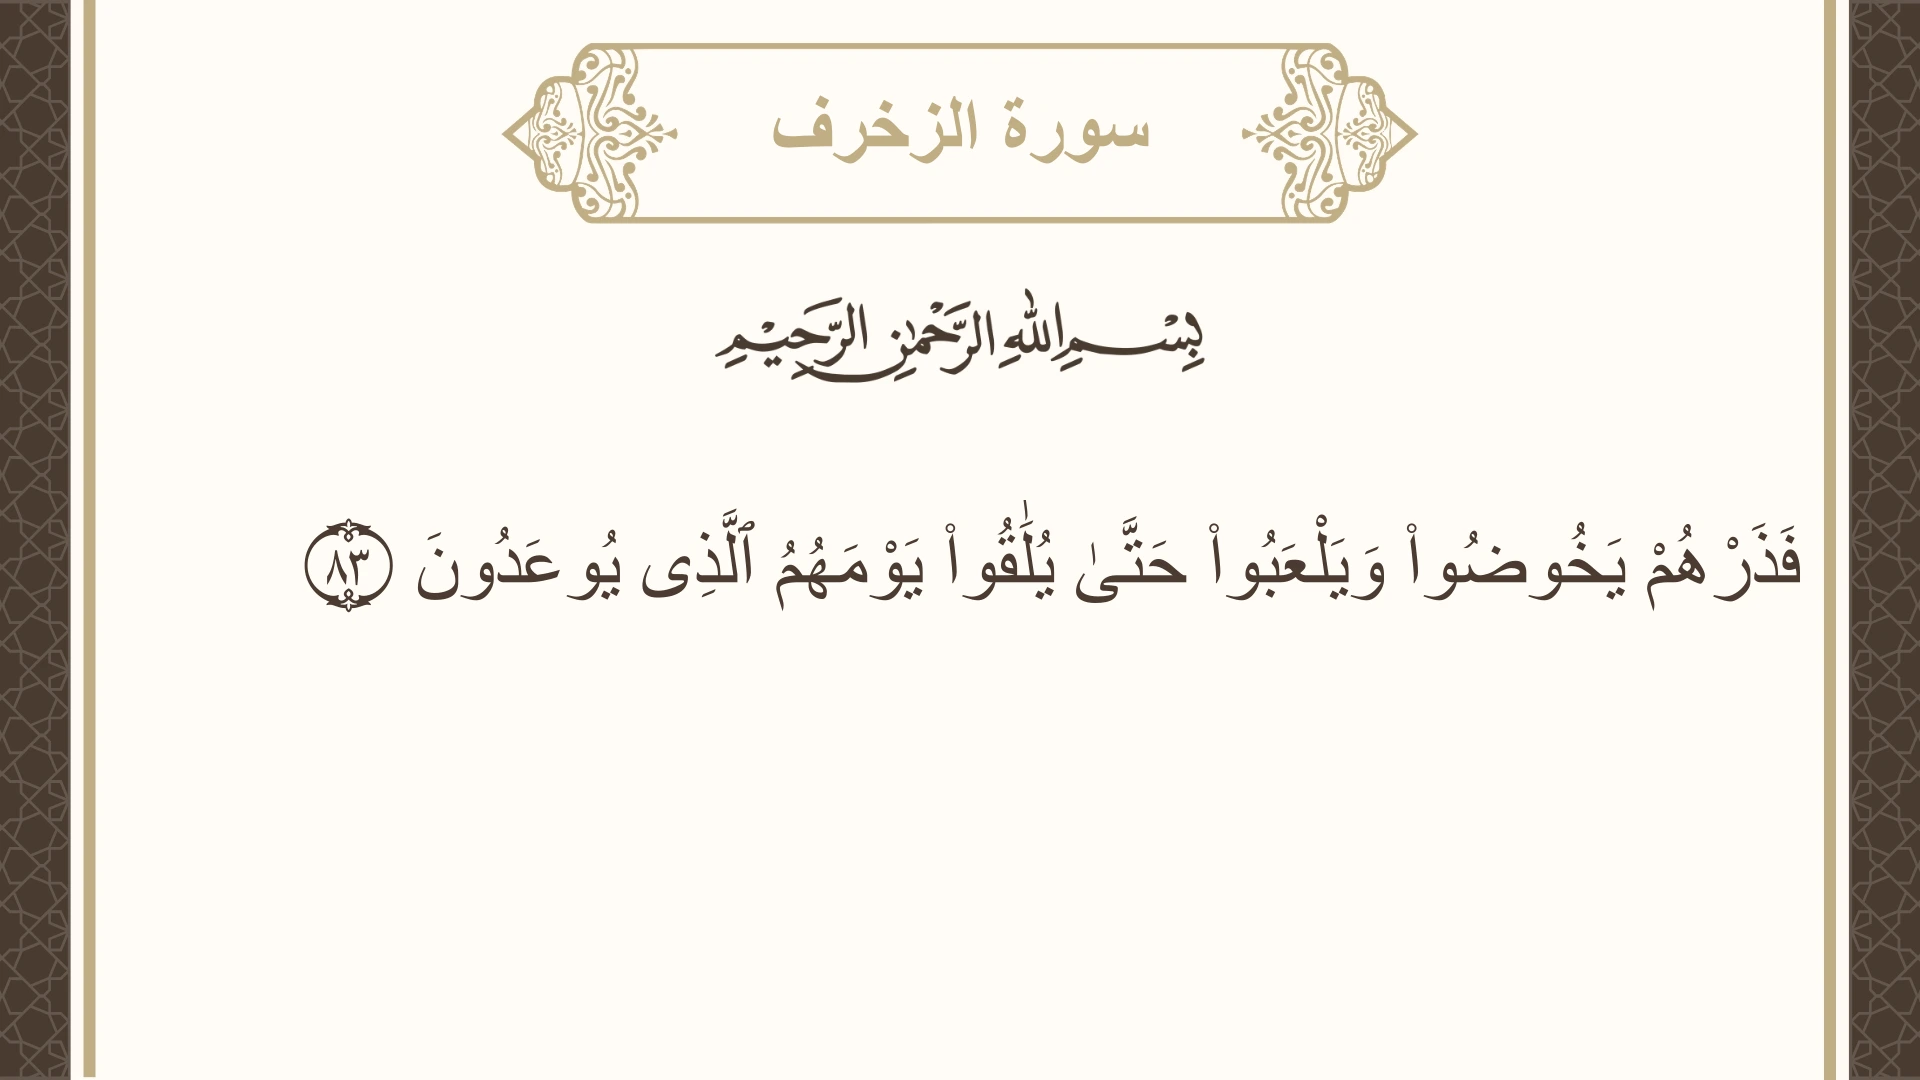 سورة الزخرف
بِسْمِ اللهِ الرَّحْمٰنِ الرَّحِيْمِ
فَذَرْهُمْ يَخُوضُوا۟ وَيَلْعَبُوا۟ حَتَّىٰ يُلَٰقُوا۟ يَوْمَهُمُ ٱلَّذِى يُوعَدُونَ ٨٣